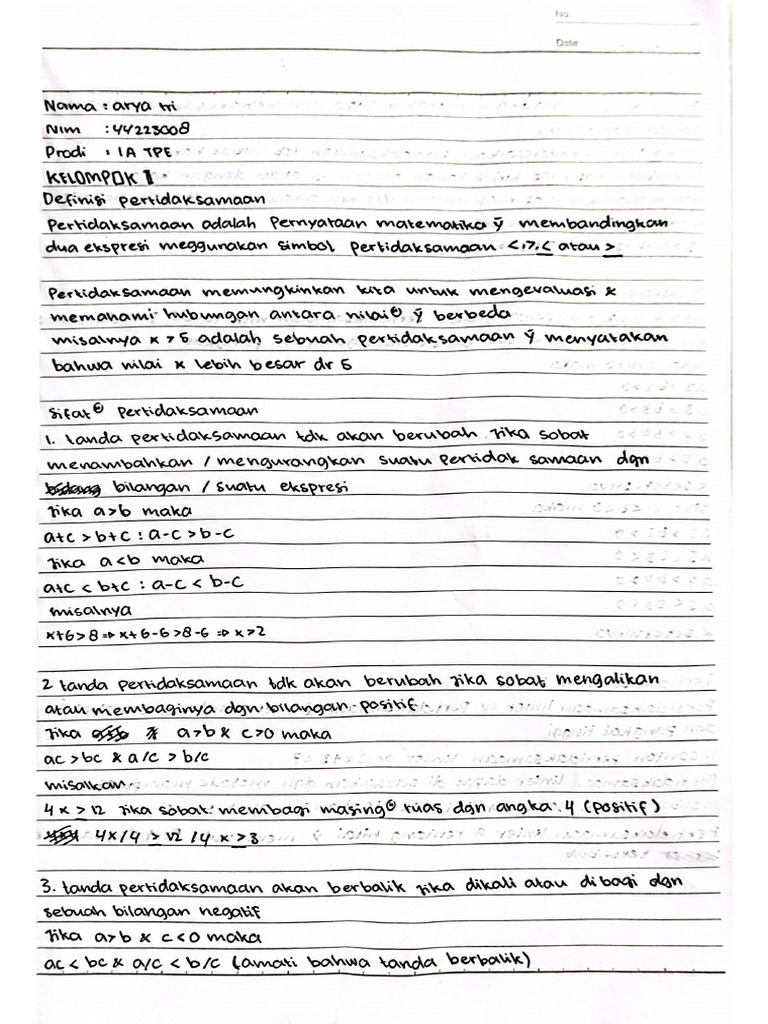 No.
Date
Nama : arya tri
Nim : 44223008
Prodi : IA TPE
KELOMPOK 1
Definisi pertidaksamaan
Pertidaksamaan adalah Pernyataan matematika ȳ membandingkan
dua ekspresi meggunakan simbol pertidaksamaan <,>,≤ atau ≥
Pertidaksamaan memungkinkan kita untuk mengevaluasi &
memahami hubungan antara nilai² ȳ berbeda
misalnya x > 5 adalah sebuah pertidaksamaan ȳ menyatakan
bahwa nilai x lebih besar dr 5
Sifat² pertidaksamaan
1. tanda pertidaksamaan tdk akan berubah jika sobat
menambahkan / mengurangkan suatu pertidak samaan dgn
bilangan / suatu ekspresi
jika a>b maka
a+c > b+c : a-c > b-c
jika a<b maka
a+c < b+c : a-c < b-c
misalnya
x+6>8 ⇒ x+6-6>8-6 ⇒ x>2
2 tanda pertidaksamaan tdk akan berubah jika sobat mengalikan
atau membaginya dgn bilangan positif
jika a>b & c>0 maka
ac > bc & a/c > b/c
misalkan
4x ≥ 12 jika sobat membagi masing² ruas dgn angka 4 (positif)
4x/4 ≥ 12/4 x ≥ 3
3. tanda pertidaksamaan akan berbalik jika dikali atau dibagi dgn
sebuah bilangan negatif
jika a>b & c<0 maka
ac < bc & a/c < b/c (amati bahwa tanda berbalik)